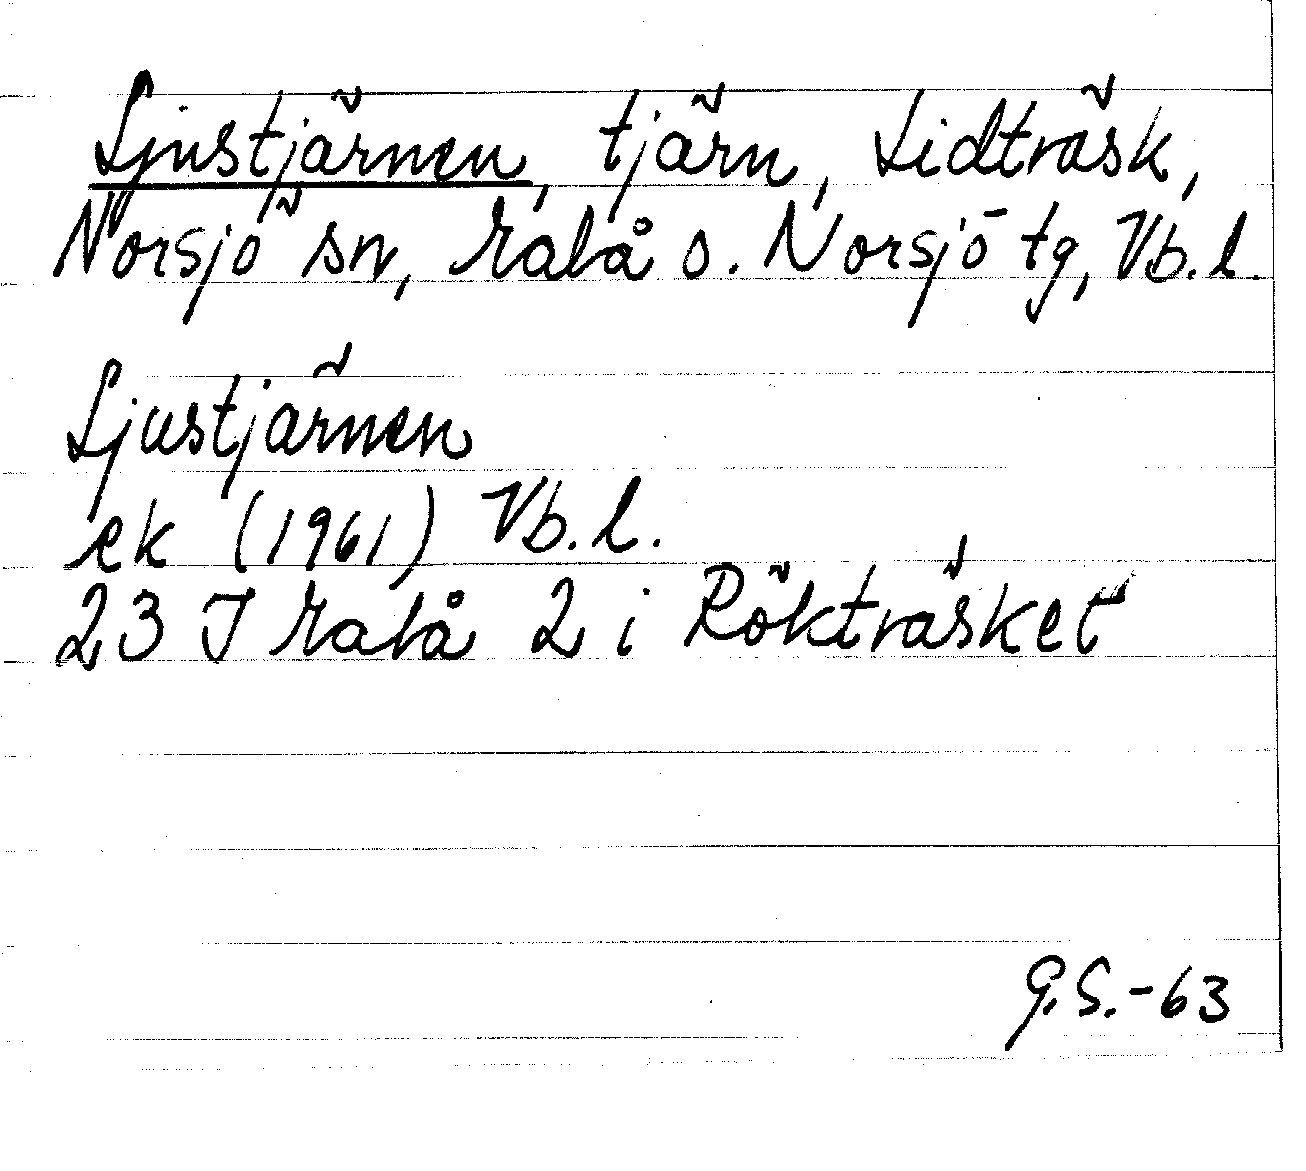 Ljustjärnen, tjärn, Lidträsk,
Norsjö sn, Malå o. Norsjö tg, Vb. l.
Ljustjärnen
ek (1961) Vb. l.
23 J Malå 2 i Röktråsket
G.S.-63